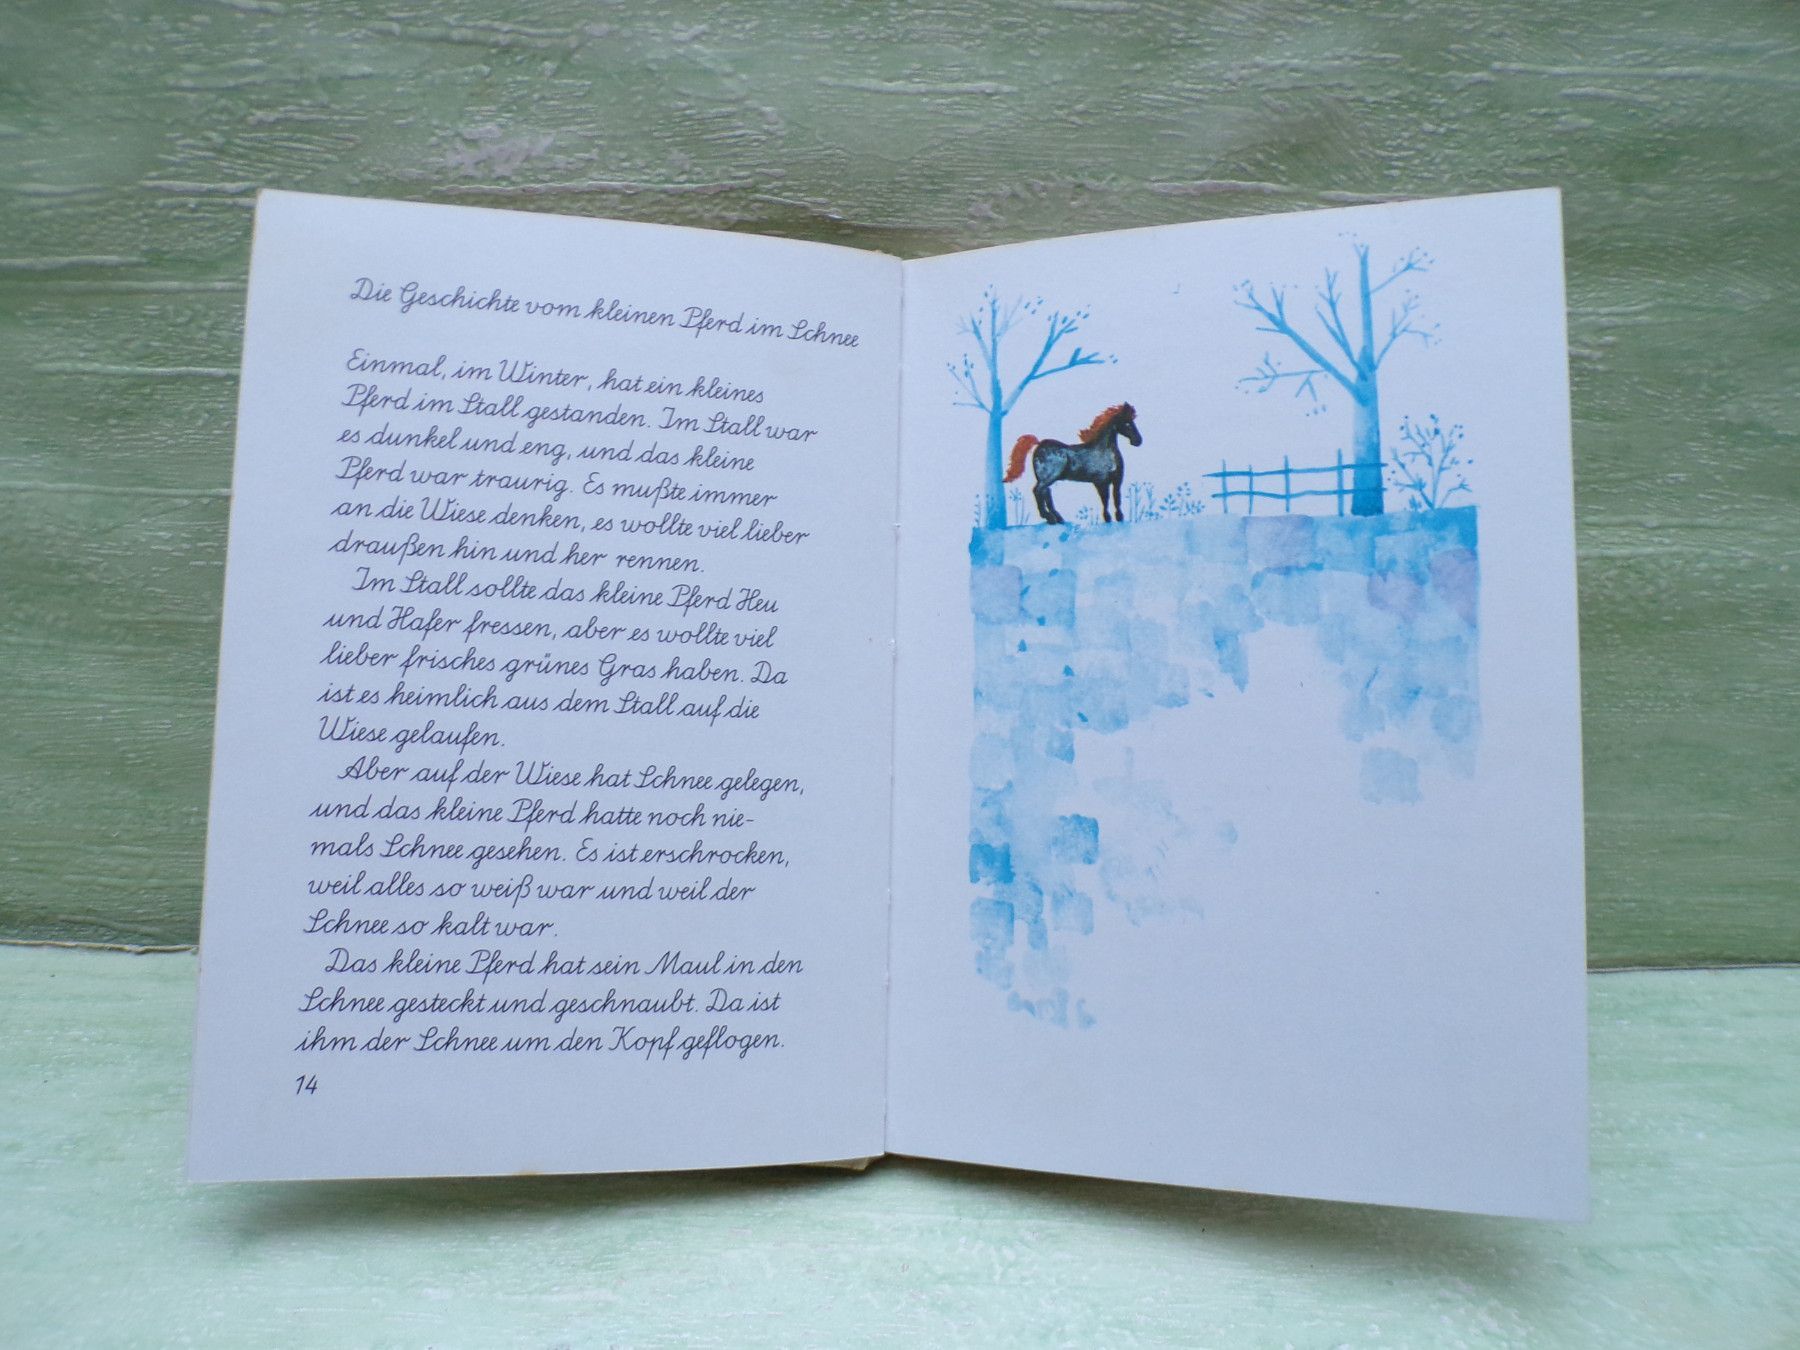 Die Geschichte vom kleinen Pferd im Schnee
Einmal, im Winter, hat ein kleines
Pferd im Stall gestanden. Im Stall war
es dunkel und eng, und das kleine
Pferd war traurig. Es mußte immer
an die Wiese denken, es wollte viel lieber
draußen hin und her rennen.
Im Stall sollte das kleine Pferd Heu
und Hafer fressen, aber es wollte viel
lieber frisches grünes Gras haben. Da
ist es heimlich aus dem Stall auf die
Wiese gelaufen.
Aber auf der Wiese hat Schnee gelegen,
und das kleine Pferd hatte noch nie-
mals Schnee gesehen. Es ist erschrocken,
weil alles so weiß war und weil der
Schnee so kalt war.
Das kleine Pferd hat sein Maul in den
Schnee gesteckt und geschnaubt. Da ist
ihm der Schnee um den Kopf geflogen.
14